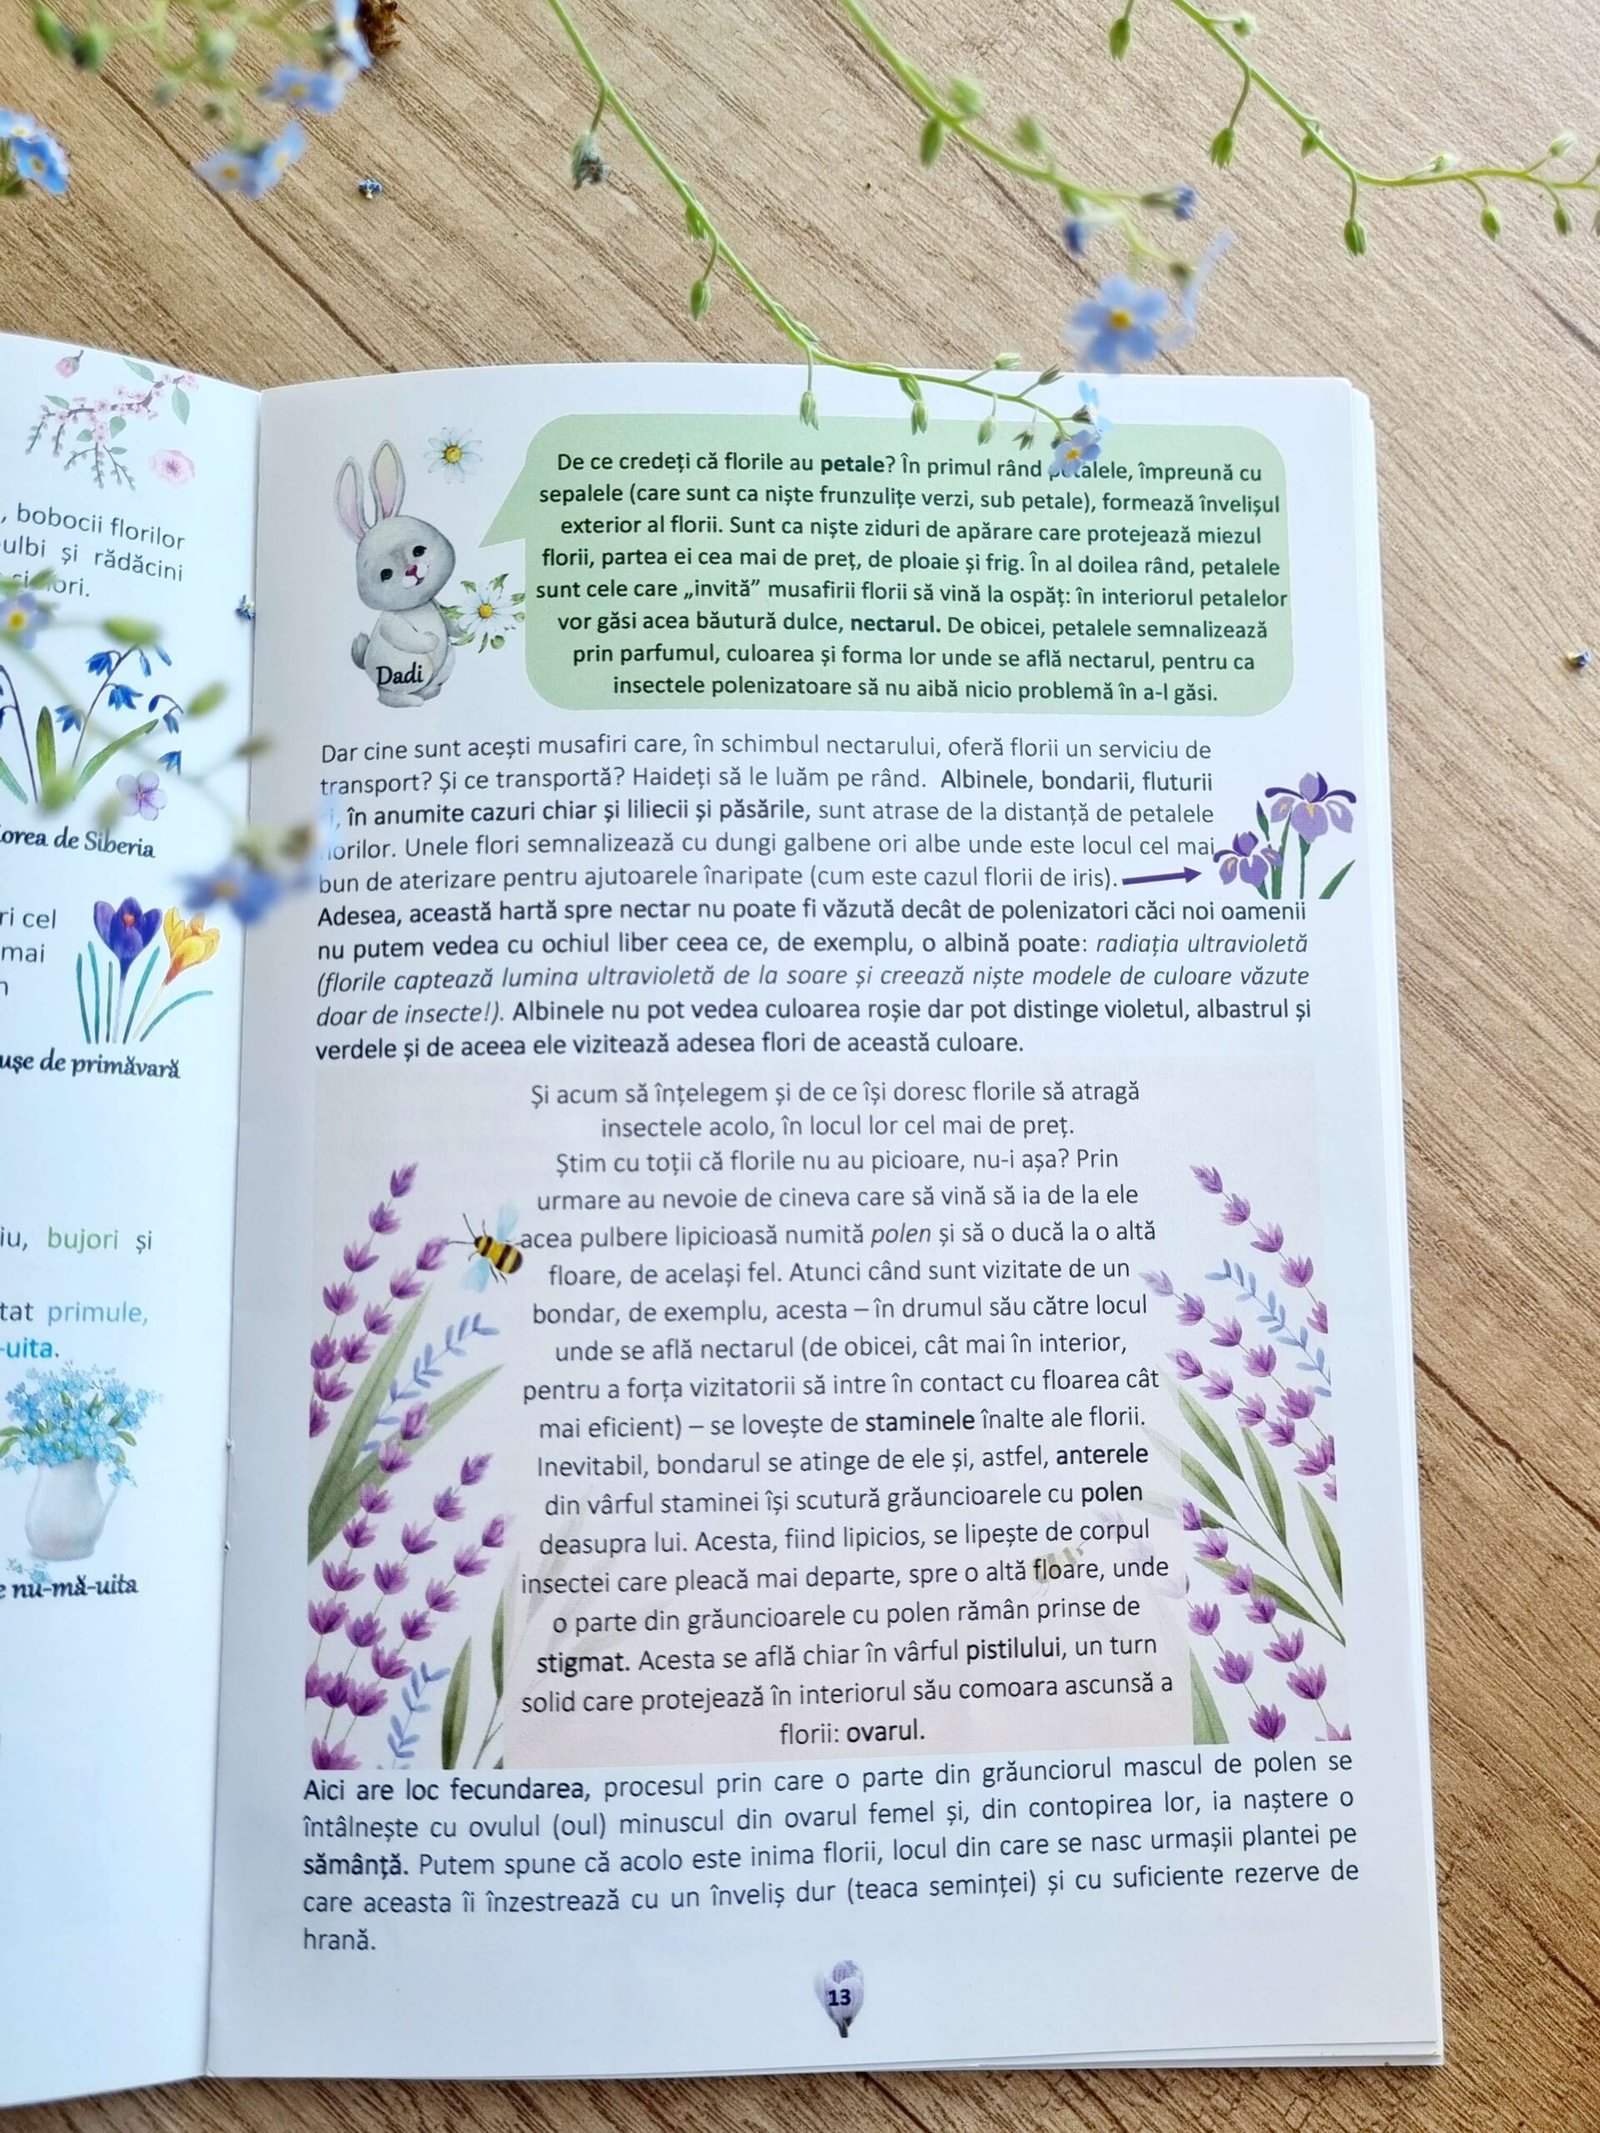 bobocii florilor
și rădăcini
de Siberia
ri cel
mai
de primăvară
bujori și
primule,
-uita.
nu-mă-uita
De ce credeți că florile au petale? În primul rând petalele, împreună cu
sepalele (care sunt ca niște frunzulițe verzi, sub petale), formează învelișul
exterior al florii. Sunt ca niște ziduri de apărare care protejează miezul
florii, partea ei cea mai de preț, de ploaie și frig. În al doilea rând, petalele
sunt cele care „invită” musafirii florii să vină la ospăț: în interiorul petalelor
vor găsi acea băutură dulce, nectarul. De obicei, petalele semnalizează
prin parfumul, culoarea și forma lor unde se află nectarul, pentru ca
insectele polenizatoare să nu aibă nicio problemă în a-l găsi.
Dadi
Dar cine sunt acești musafiri care, în schimbul nectarului, oferă florii un serviciu de
transport? Și ce transportă? Haideți să le luăm pe rând. Albinele, bondarii, fluturii
în anumite cazuri chiar și liliecii și păsările, sunt atrase de la distanță de petalele
florilor. Unele flori semnalizează cu dungi galbene ori albe unde este locul cel mai
bun de aterizare pentru ajutoarele înaripate (cum este cazul florii de iris).
Adesea, această hartă spre nectar nu poate fi văzută decât de polenizatori căci noi oamenii
nu putem vedea cu ochiul liber ceea ce, de exemplu, o albină poate: radiația ultravioletă
(florile captează lumina ultravioletă de la soare și creează niște modele de culoare văzute
doar de insecte!). Albinele nu pot vedea culoarea roșie dar pot distinge violetul, albastrul și
verdele și de aceea ele vizitează adesea flori de această culoare.
Și acum să înțelegem și de ce își doresc florile să atragă
insectele acolo, în locul lor cel mai de preț.
Știm cu toții că florile nu au picioare, nu-i așa? Prin
urmare au nevoie de cineva care să vină să ia de la ele
acea pulbere lipicioasă numită polen și să o ducă la o altă
floare, de același fel. Atunci când sunt vizitate de un
bondar, de exemplu, acesta – în drumul său către locul
unde se află nectarul (de obicei, cât mai în interior,
pentru a forța vizitatorii să intre în contact cu floarea cât
mai eficient) – se lovește de staminele înalte ale florii.
Inevitabil, bondarul se atinge de ele și, astfel, anterele
din vârful staminei își scutură grăuncioarele cu polen
deasupra lui. Acesta, fiind lipicios, se lipește de corpul
insectei care pleacă mai departe, spre o altă floare, unde
o parte din grăuncioarele cu polen rămân prinse de
stigmat. Acesta se află chiar în vârful pistilului, un turn
solid care protejează în interiorul său comoara ascunsă a
florii: ovarul.
Aici are loc fecundarea, procesul prin care o parte din grăunciorul mascul de polen se
întâlnește cu ovulul (oul) minuscul din ovarul femel și, din contopirea lor, ia naștere o
sămânță. Putem spune că acolo este inima florii, locul din care se nasc urmașii plantei pe
care aceasta îi înzestrează cu un înveliș dur (teaca seminței) și cu suficiente rezerve de
hrană.
13